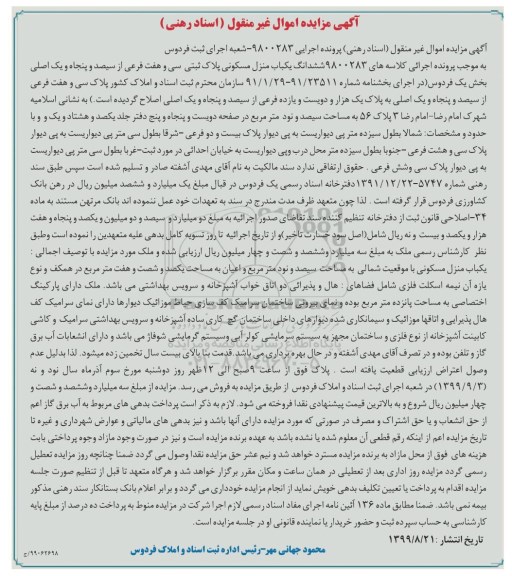 آگهی مزایده اموال غیر منقول (اسناد رهنی)
آگهی مزایده اموال غیر منقول (اسناد رهنی) پرونده اجرایی ۹۸۰۰۲۸۳-شعبه اجرای ثبت فردوس
به موجب پرونده اجرائی کلاسه های ۹۸۰۰۲۸۳ ششدانگ یکباب منزل مسکونی پلاک ثبتی سی و هفت فرعی از سیصد و پنجاه و یک اصلی
بخش یک فردوس(در اجرای بخشنامه شماره ۹۱/۲۳۵۱۱-۹۱/۱/۲۹ سازمان محترم ثبت اسناد و املاک کشور پلاک سی و هفت فرعی
از سیصد و پنجاه و یک اصلی به پلاک یک هزار و دویست و یازده فرعی از سیصد و پنجاه و یک اصلی اصلاح گردیده است.) به نشانی اسلامیه
شهرک امام رضا-امام رضا ۳ پلاک ۵۶ به مساحت سیصد و نود متر مربع در صفحه دویست و پنجاه و پنج دفتر جلد یکصد و هشتاد و یک و و با
حدود و مشخصات: شمالا بطول سیزده متر پی دیواریست به پی دیوار پلاک بیست و دو فرعی -شرقا بطول سی متر پی دیواریست به پی دیوار
پلاک سی و هشت فرعی -جنوبا بطول سیزده متر محل درب وپی دیواریست به خیابان احداثی در مورد ثبت-غربا بطول سی متر پی دیواریست
به پی دیوار پلاک سی وشش فرعی . حقوق ارتفاقی ندارد سند مالکیت به نام آقای مهدی آشفته صادر و تسلیم شده است سپس طبق سند
رهنی شماره ۵۷۴۷-۱۳۹۱/۱۲/۲۲ دفترخانه اسناد رسمی یک فردوس در قبال مبلغ یک میلیارد و ششصد میلیون ریال در رهن بانک
کشاورزی فردوس قرار گرفته است . لذا چون متعهد ظرف مدت مندرج در سند به تعهدات خود عمل ننموده اند بانک مرتهن مستند به ماده
۳۴-اصلاحی قانون ثبت از دفترخانه تنظیم کننده سند تقاضای صدور اجرائیه به مبلغ دو میلیارد و سیصد و دو میلیون و یکصد و پنجاه و هفت
هزار و یکصد و بیست و نه ریال شامل(اصل سود خسارت تأخیر)و از تاریخ اجرائیه تا روز تسویه کامل بدهی علیه متعهدین را نموده است وطبق
نظر کارشناس رسمی ملک به مبلغ سه میلیارد وششصد و شصت و چهار میلیون ریال ارزیابی شده و ملک مورد مزایده با توصیف اجمالی :
یکباب منزل مسکونی با موقعیت شمالی به مساحت سیصد و نود متر مربع و اعیان به مساحت یکصد و شصت و هفت متر مربع در همکف و نوع
سازه آن نیمه اسکلت فلزی شامل فضاهای : هال و پذیرائی دو اتاق خواب آشپزخانه و سرویس بهداشتی می باشد. ملک دارای پارکینگ
اختصاصی به مساحت پانزده متر مربع بوده و نمای بیرونی ساختمان سرامیک کف سازی حیاط موزائیک دیوارها دارای نمای سرامیک کف
هال پذیرایی و اتاقها موزائیک و سیمانکاری شده دیوارهای داخلی ساختمان گچ کاری ساده آشپزخانه و سرویس بهداشتی سرامیک و کاشی
کابینت آشپزخانه از نوع فلزی و ساختمان مجهز به سیستم سرمایشی کولر آبی وسیستم گرمایشی شوفاژ می باشد و دارای انشعابات آب برق
گاز و تلفن بوده و در تصرف آقای مهدی آشفته و در حال بهره برداری می باشد.قدمت بنا بالای بیست سال تخمین زده میشود. لذا بدلیل عدم
وصول اعتراض ارزیابی قطعیت یافته است . پلاک فوق از ساعت ۹صبح الی ۱۲ظهر روز دوشنبه مورخ سوم آذرماه سال نود و نه
(۱۳۹۹/۹/۳) در شعبه اجرای ثبت اسناد و املاک فردوس از طریق مزایده به فروش می رسد. مزایده از مبلغ سه میلیارد وششصد و شصت و
چهار میلیون ریال شروع و به بالاترین قیمت پیشنهادی نقدا فروخته می شود. لازم به ذکر است پرداخت بدهی های مربوط به آب برق گاز اعم
از حق انشعاب و یا حق اشتراک و مصرف در صورتی که مورد مزایده دارای آنها باشد و نیز بدهی های مالیاتی و عوارض شهرداری و غیره تا
تاریخ مزایده اعم از اینکه رقم قطعی آن معلوم شده یا نشده باشد به عهده برنده مزایده است و نیز در صورت وجود مازاد وجوه پرداختی بابت
هزینه های فوق از محل مازاد به برنده مزایده مسترد خواهد شد و نیم عشر حق مزایده نقدا وصول می گردد ضمنا چنانچه روز مزایده تعطیل
رسمی گردد مزایده روز اداری بعد از تعطیلی در همان ساعت و مکان مقرر برگزار خواهد شد و هرگاه متعهد تا قبل از تنظیم صورت جلسه
مزایده اقدام به پرداخت یا تعیین تکلیف بدهی خویش نماید از انجام مزایده خودداری می گردد و برابر اعلام بانک بستانکار سند رهنی مذکور
بیمه نمی باشد. ضمنا مطابق ماده ۱۳۶ آئین نامه اجرای مفاد اسناد رسمی لازم اجرا شرکت در مزایده منوط به پرداخت ده درصد از مبلغ پایه
کارشناسی به حساب سپرده ثبت و حضور خریدار یا نماینده قانونی او در جلسه مزایده است.
تاریخ انتشار :۱۳۹۹/۸/۲۱
محمود جهانی مهر-رئیس اداره ثبت اسناد و املاک فردوس
۹۹۰۶۲۶۹۸/ج